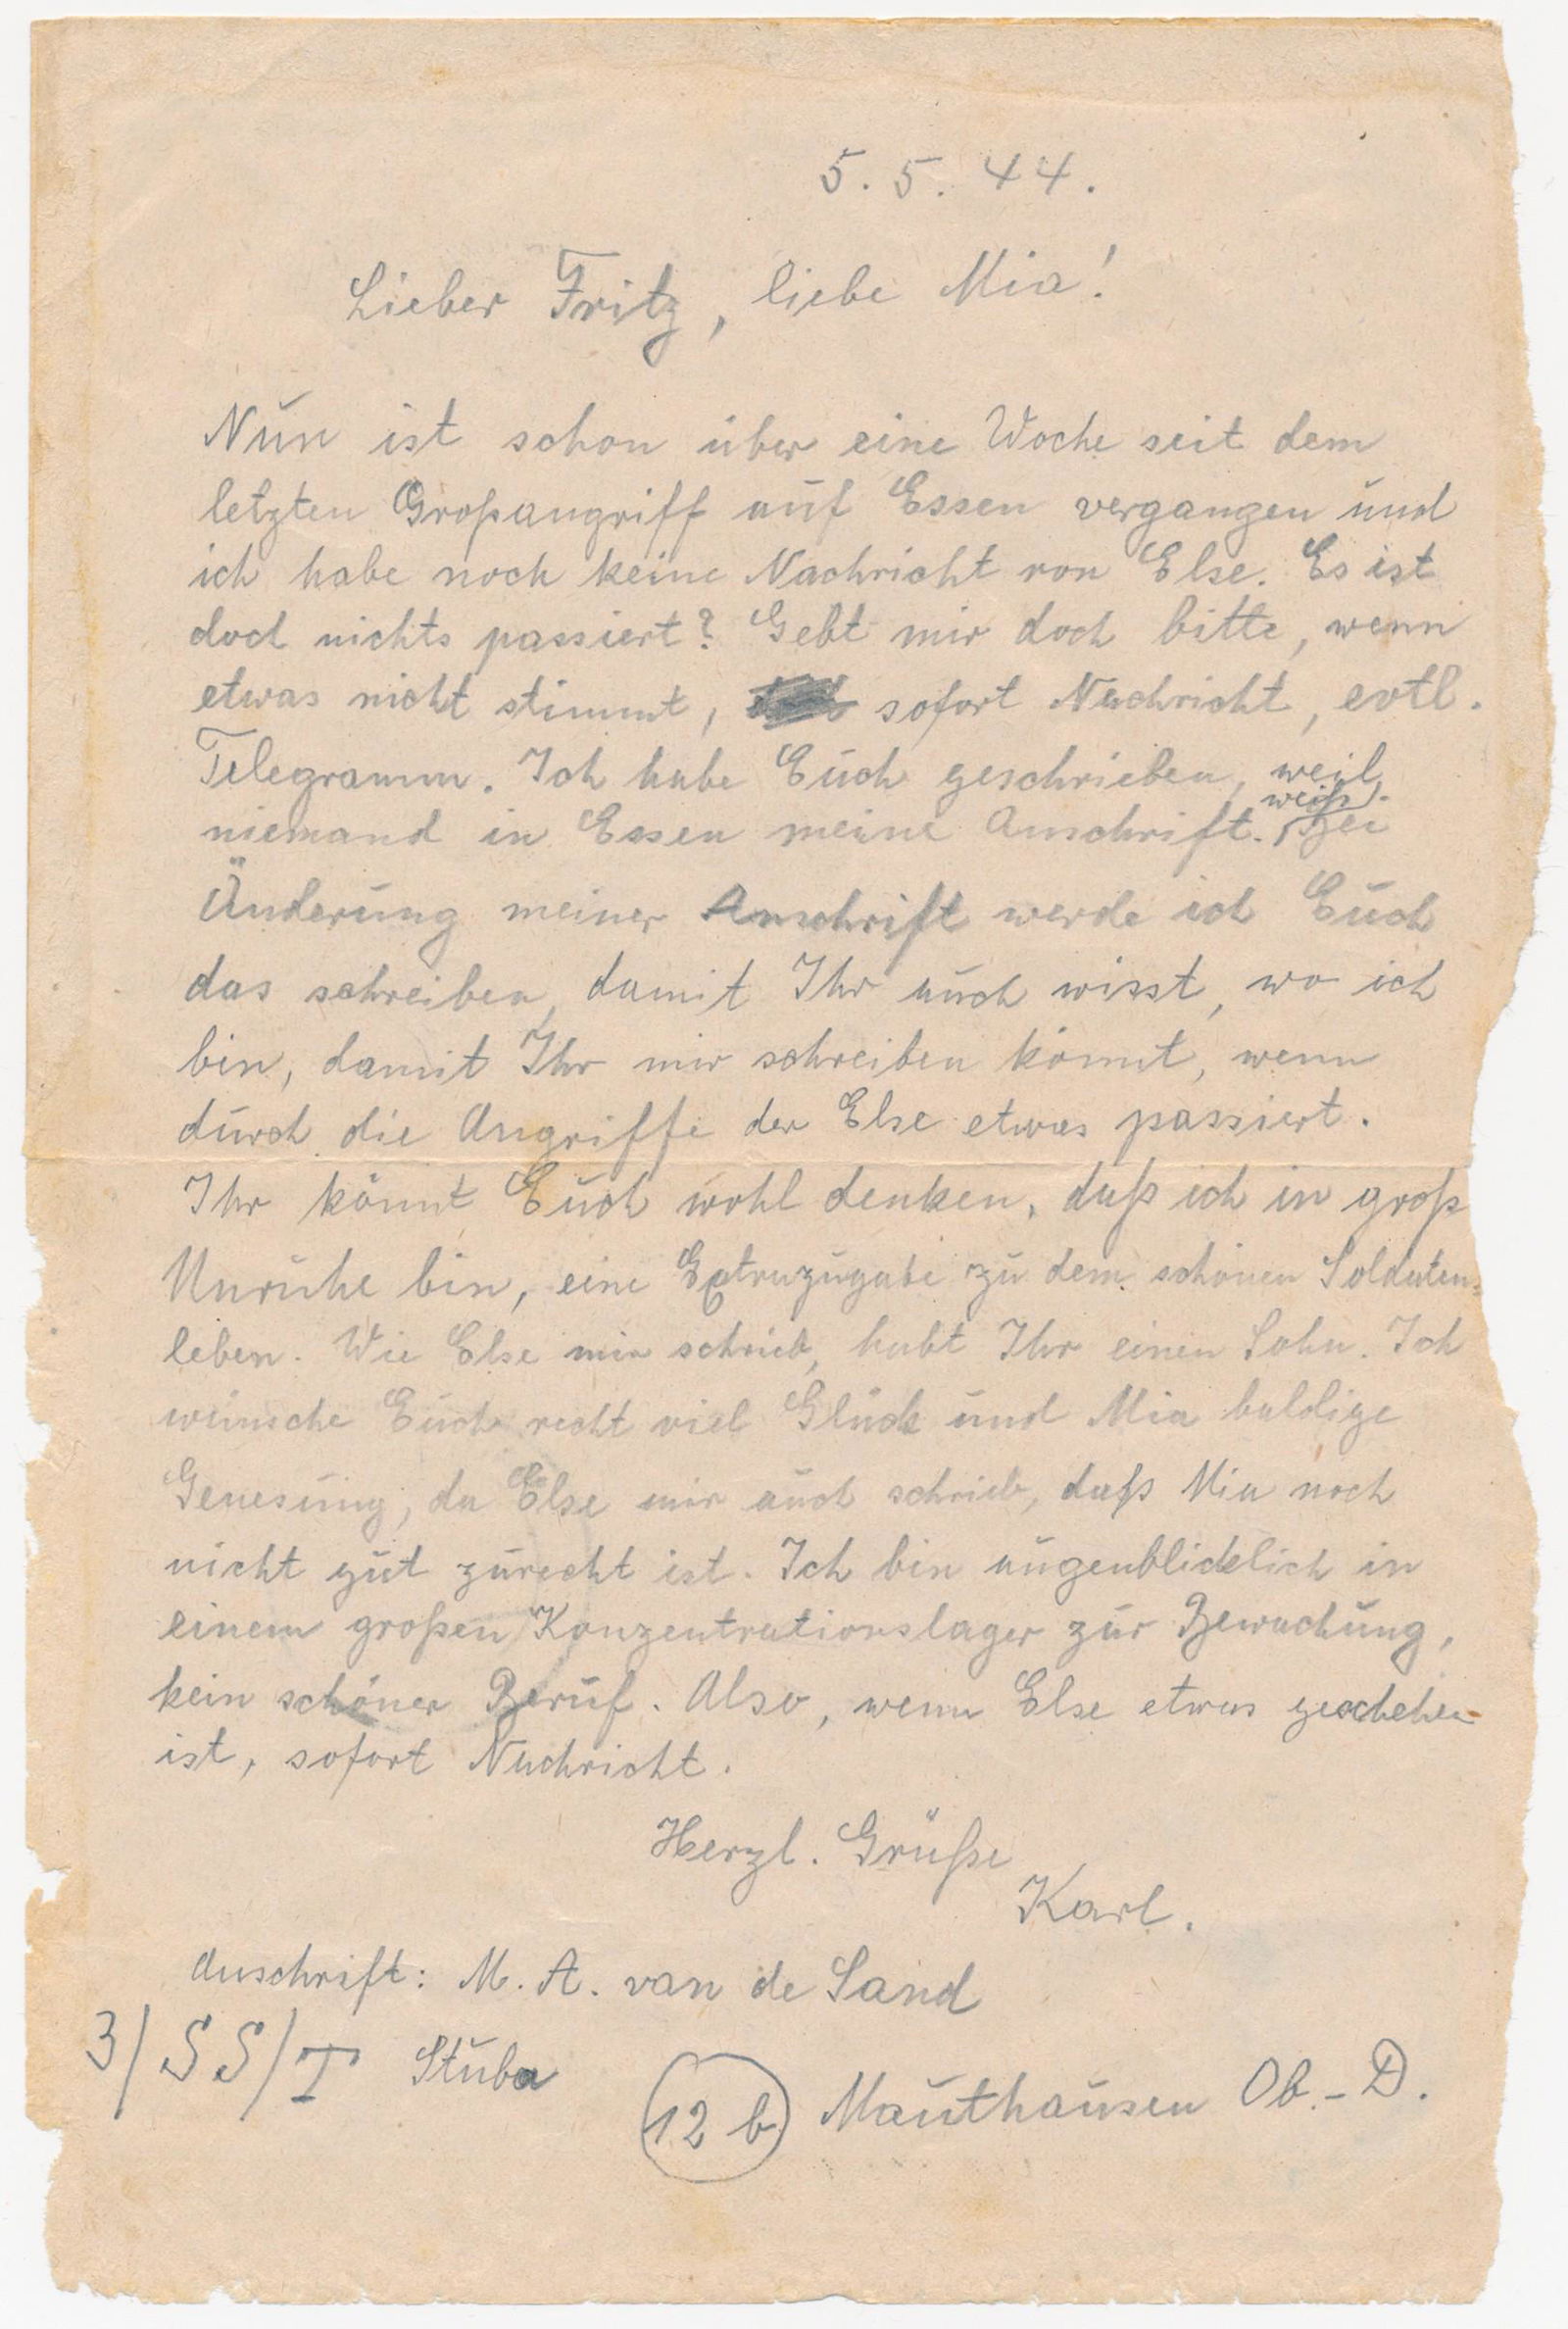 5. 5. 44.
Lieber Fritz, liebe Mia!
Nun ist schon über eine Woche seit dem
letzten Großangriff auf Essen vergangen und
ich habe noch keine Nachricht von Else. Es ist
doch nichts passiert? Gebt mir doch bitte, wenn
etwas nicht stimmt, sofort Nachricht, evtl.
Telegramm. Ich habe Euch geschrieben, weil
niemand in Essen meine Anschrift weiß. Bei
Änderung meiner Anschrift werde ich Euch
das schreiben, damit Ihr auch wisst, wo ich
bin, damit Ihr mir schreiben könnt, wenn
durch die Angriffe der Else etwas passiert.
Ihr könnt Euch wohl denken, daß ich in groß
Unruhe bin, eine Extrazugabe zu dem schönen Soldaten-
leben. Wie Else mir schrieb, habt Ihr einen Sohn. Ich
wünsche Euch recht viel Glück und Mia baldige
Genesung, da Else mir auch schrieb, daß Mia noch
nicht gut zurecht ist. Ich bin augenblicklich in
einem großen Konzentrationslager zur Bewachung,
kein schöner Beruf. Also, wenn Else etwas geschehen
ist, sofort Nachricht.
Herzl. Grüße
Karl.
Anschrift: M. A. van de Sand
3/SS/T Stuba
12 b Mauthausen Ob.-D.